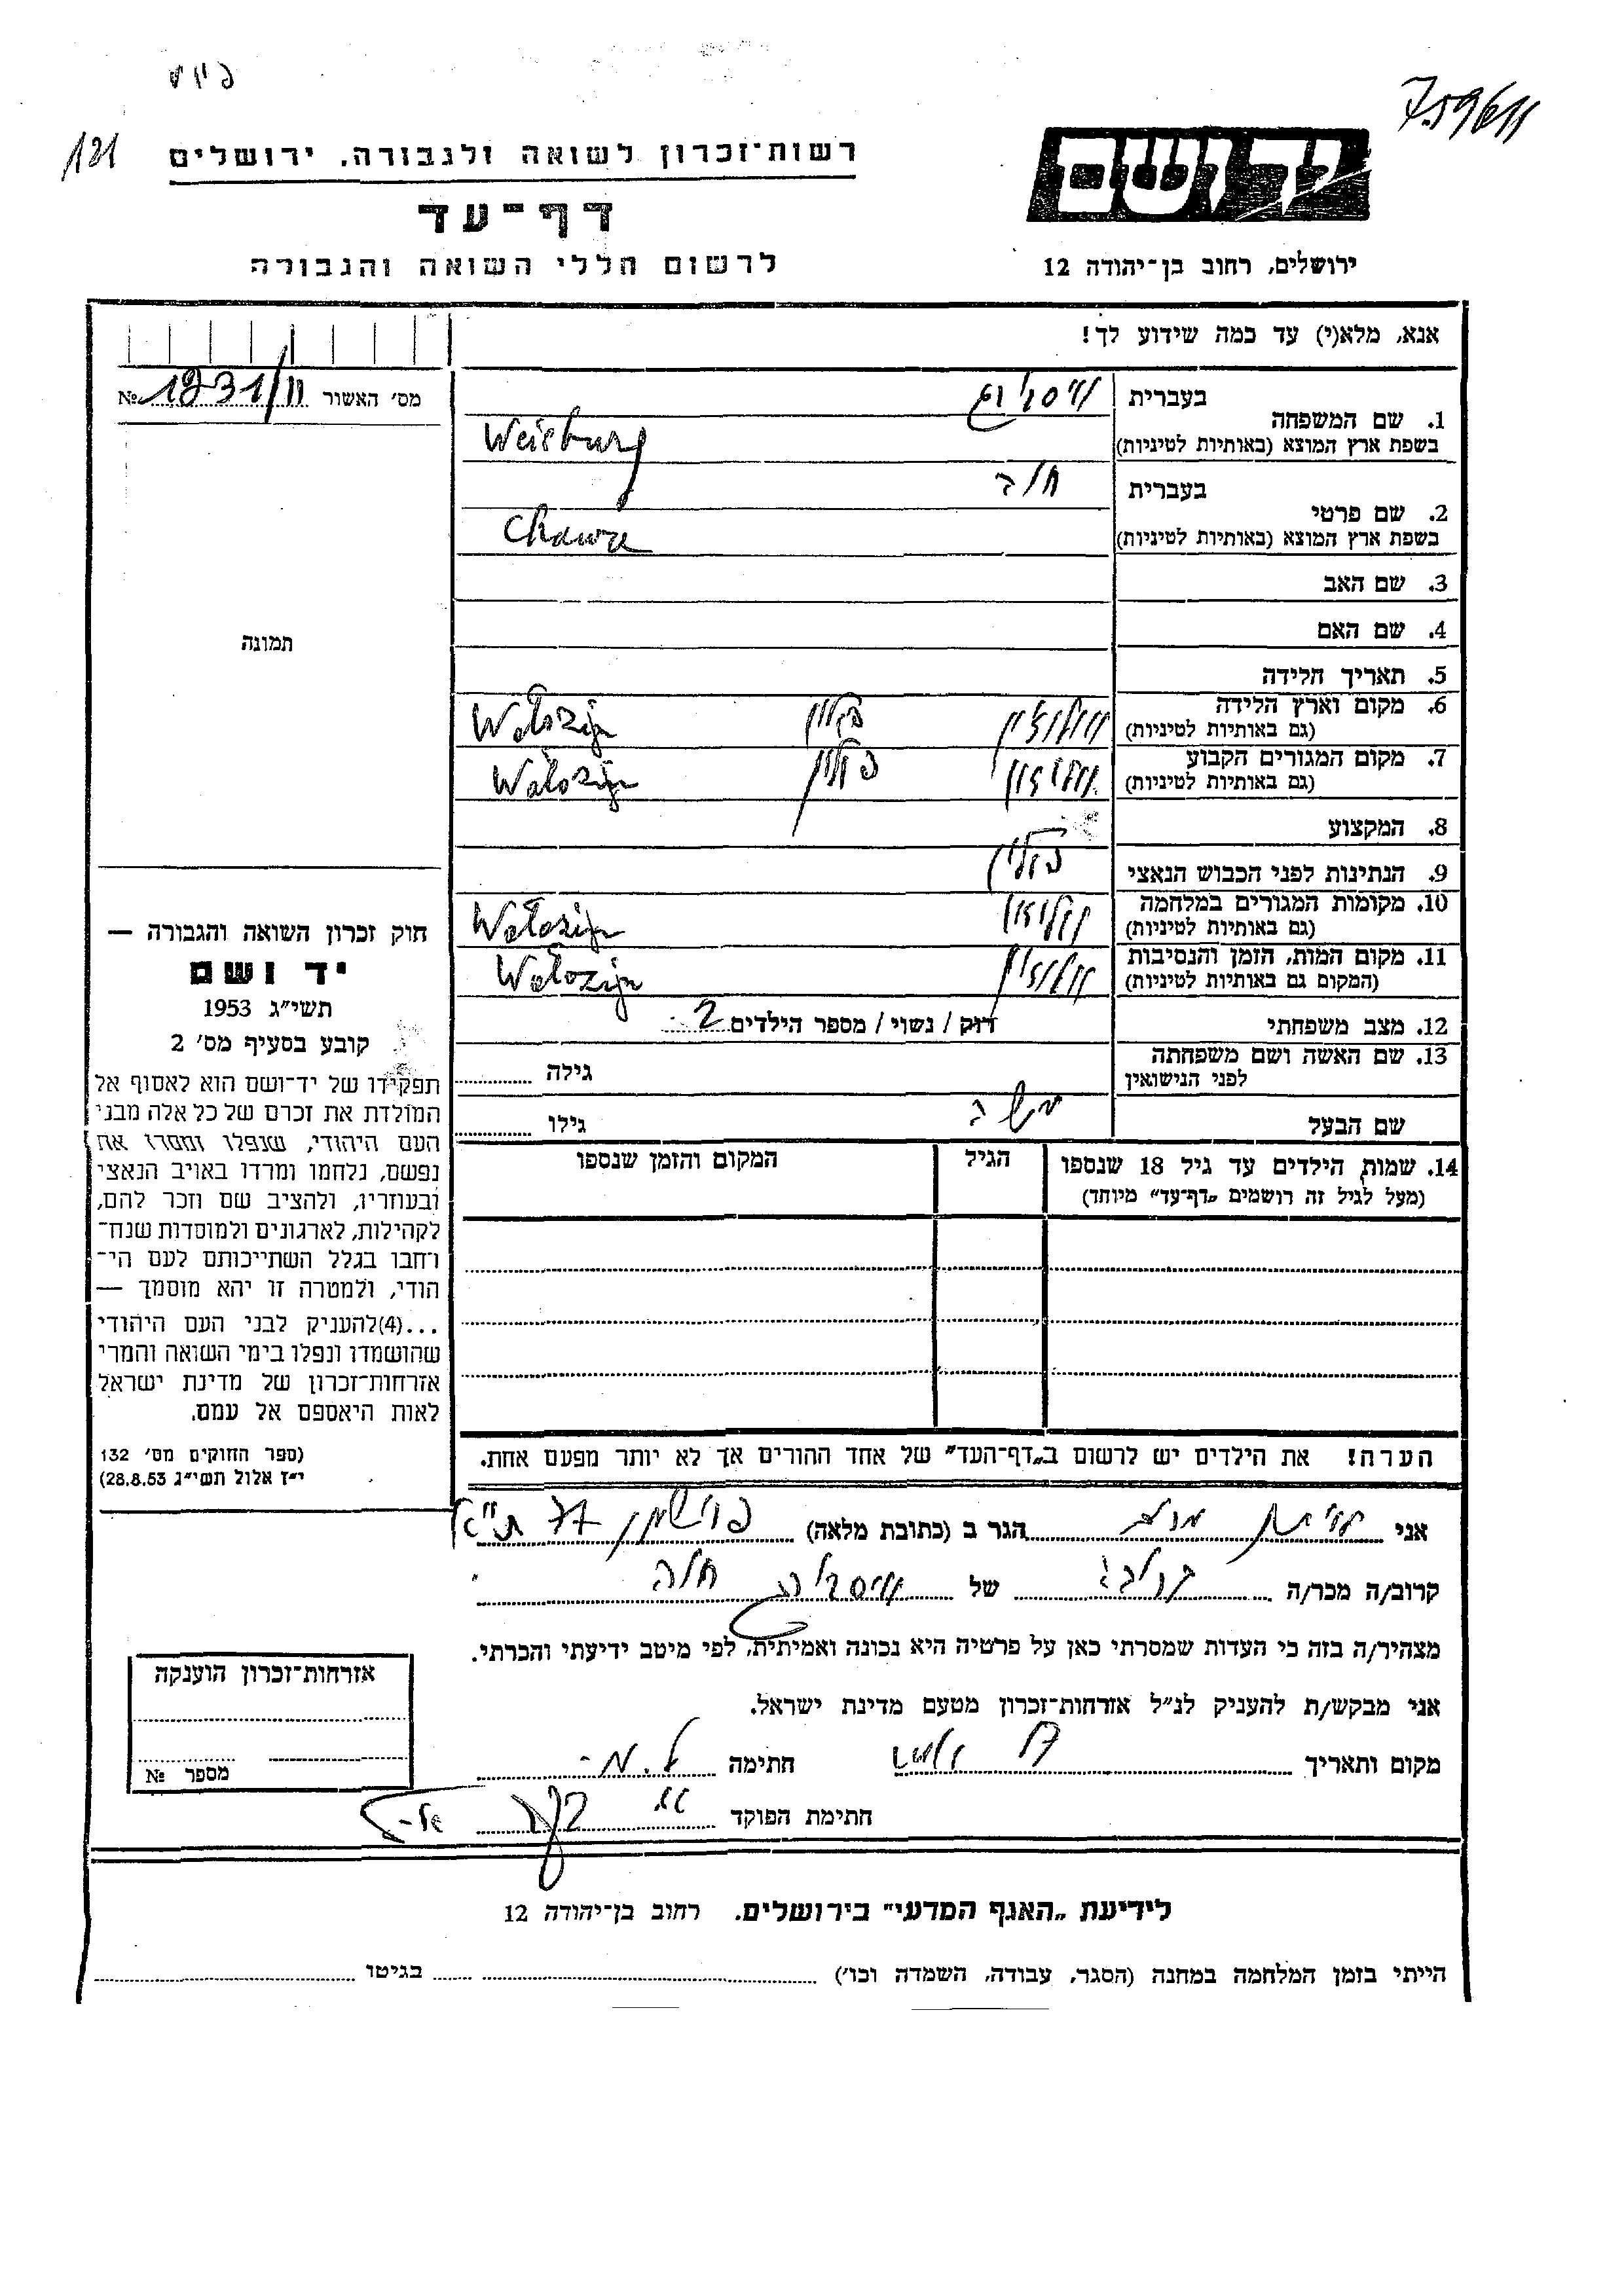 121
רשות־זכרון לשואה ולגבורה, ירושלים
יד ושם
דף־עד
לרשום חללי השואה והגבורה
ירושלים, רחוב בן־יהודה 12
אנא, מלא(י) עד כמה שידוע לך!
מס׳ האשור 1231/11 №
1. שם המשפחה בעברית
בשפת ארץ המוצא (באותיות לטיניות) Weisburg
2. שם פרטי בעברית חוה
בשפת ארץ המוצא (באותיות לטיניות) Chawa
3. שם האב
4. שם האם
5. תאריך הלידה
6. מקום וארץ הלידה וולוז'ין פולין Wołozyn
(גם באותיות לטיניות)
7. מקום המגורים הקבוע וולוז'ין פולין Wołozyn
(גם באותיות לטיניות)
8. המקצוע
9. הנתינות לפני הכבוש הנאצי פולין
10. מקומות המגורים במלחמה וולוז'ין Wołozyn
(גם באותיות לטיניות)
11. מקום המות, הזמן והנסיבות וולוז'ין Wołozyn
(המקום גם באותיות לטיניות)
12. מצב משפחתי רוק / נשוי / מספר הילדים 2
13. שם האשה ושם משפחתה גילה
לפני הנישואין
שם הבעל משה גילו
14. שמות הילדים עד גיל 18 שנספו הגיל המקום והזמן שנספו
(מעל לגיל זה רושמים „דף־עד״ מיוחד)
הערה! את הילדים יש לרשום ב„דף־העד״ של אחד ההורים אך לא יותר מפעם אחת.
תמונה
חוק זכרון השואה והגבורה —
יד ושם
תשי״ג 1953
קובע בסעיף מס׳ 2
תפקידו של יד־ושם הוא לאסוף אל
המולדת את זכרם של כל אלה מבני
העם היהודי, שנפלו ומסרו את
נפשם, נלחמו ומרדו באויב הנאצי
ובעוזריו, ולהציב שם וזכר להם,
לקהילות, לארגונים ולמוסדות שנח־
רחבו בגלל השתייכותם לעם הי־
הודי, ולמטרה זו יהא מוסמך —
...(4)להעניק לבני העם היהודי
שהושמדו ונפלו בימי השואה והמרי
אזרחות־זכרון של מדינת ישראל
לאות היאספם אל עמם.
(ספר החוקים מס׳ 132
י״ז אלול תשי״ג 28.8.53)
אני הגר ב (כתובת מלאה) פרישמן 77 ת"א
קרוב/ה מכר/ה של חוה
מצהיר/ה בזה כי העדות שמסרתי כאן על פרטיה היא נכונה ואמיתית, לפי מיטב ידיעתי והכרתי.
אני מבקש/ת להעניק לנ״ל אזרחות־זכרון מטעם מדינת ישראל.
מקום ותאריך חתימה
חתימת הפוקד
אזרחות־זכרון הוענקה
מספר №
לידיעת „האגף המדעי״ בירושלים, רחוב בן־יהודה 12
הייתי בזמן המלחמה במחנה (הסגר, עבודה, השמדה וכו׳) בגיטו